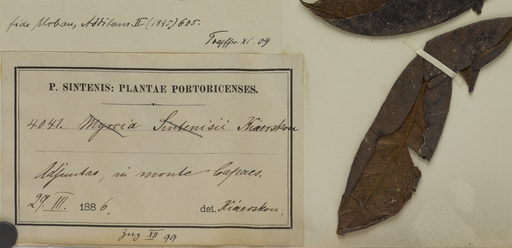 fide Urban, Additam. II (1895) 605.
Toepffer XI. 09
P. SINTENIS: PLANTAE PORTORICENSES.
4041. Myrcia Sintenisii Kiaerskou
Adjuntas, in monte Capaes.
29. III. 1886. det. Kiaerskou.
XII 99